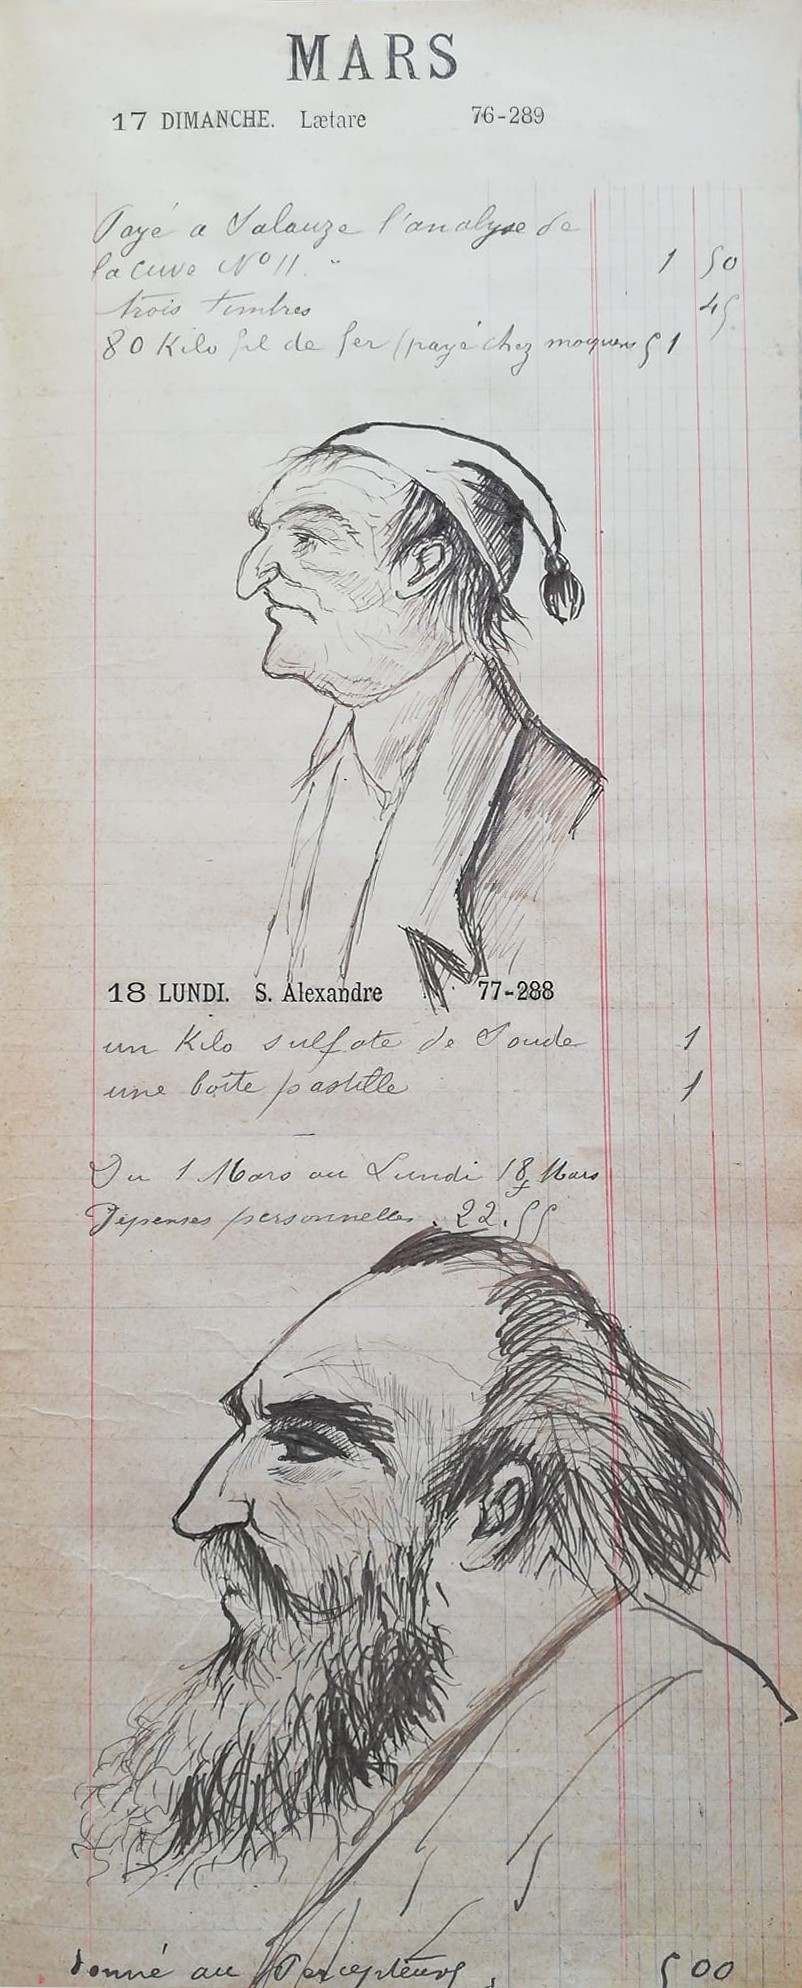 MARS
17 DIMANCHE. Lætare 76-289
Payé a Salauze l'analyse de
la cuve N° 11. " 1 50
trois timbres 45
80 Kilo fil de fer (payé chez 51
18 LUNDI. S. Alexandre 77-288
un Kilo sulfate de Soude 1
une boîte pastille 1
Du 1 Mars au Lundi 18 Mars
Dépenses personnelles. 22.55
donné au Percepteur, 500